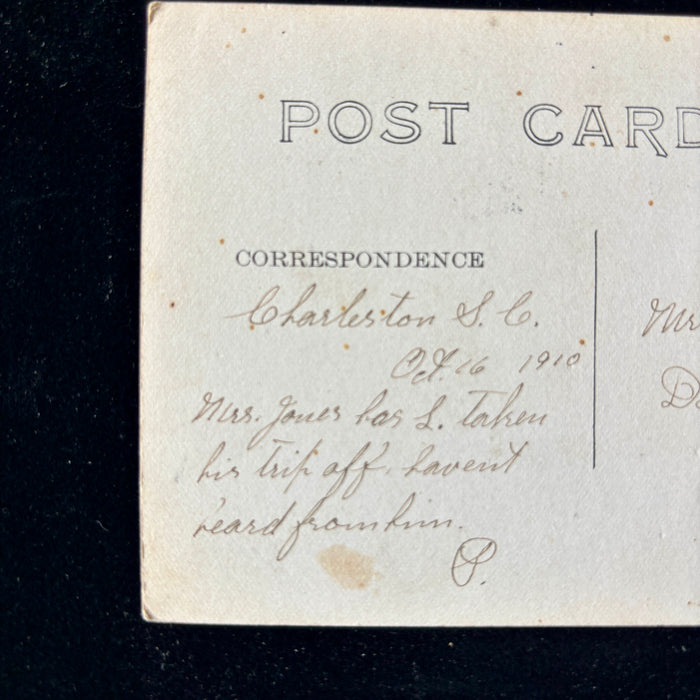 POST CARD
CORRESPONDENCE
Charleston S. C.
Oct. 16 1910
Mrs. Jones has L. taken
his trip off, havent
heard from him.
P.
Mr
D